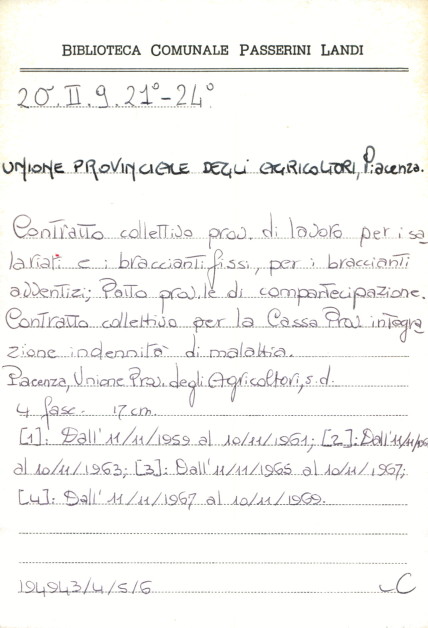 BIBLIOTECA COMUNALE PASSERINI LANDI
20.II.9.21°-24°
UNIONE PROVINCIALE DEGLI AGRICOLTORI, Piacenza.
Contratto collettivo prov. di lavoro per i sa
lariati e i braccianti fissi, per i braccianti
avventizi; Patto prov.le di compartecipazione.
Contratto collettivo per la Cassa Prov integra
zione indennità di malattia.
Piacenza, Unione Prov. degli Agricoltori, s.d.
4 fasc. 17 cm.
[1]: Dall'11/11/1959 al 10/11/1961; [2]: Dall'11/11/
al 10/11/1963; [3]: Dall'11/11/1965 al 10/11/1967;
[4]: Dall'11/11/1967 al 10/11/1969.
194943/4/5/6